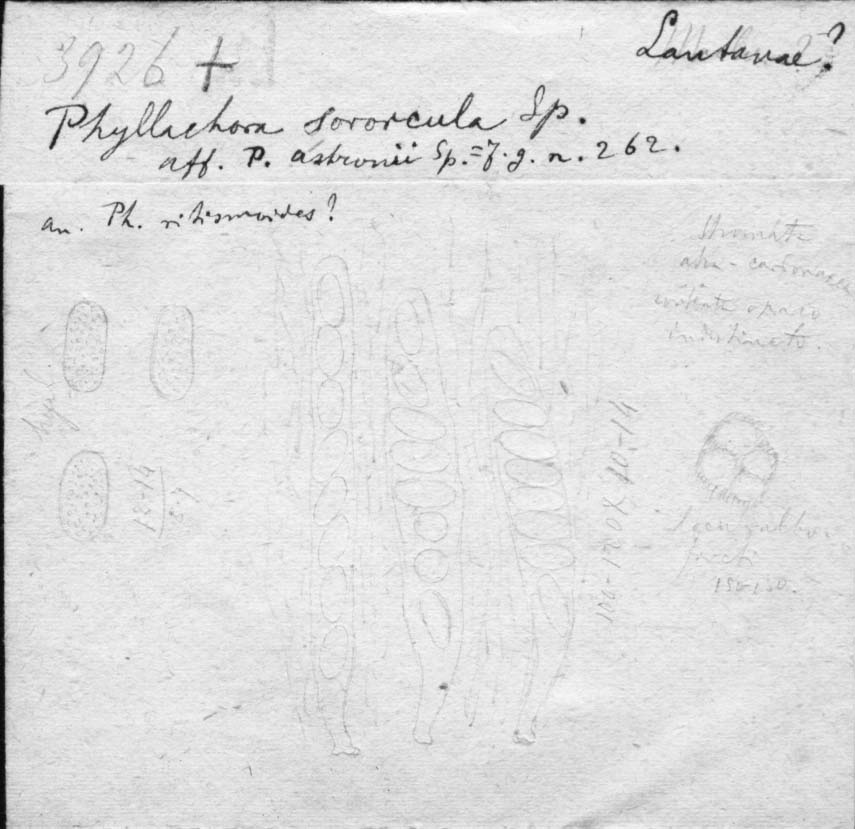 3926 +
Lantanae?
Phyllachora sororcula Sp.
aff. P. astronii Sp. = F. g. n. 262.
an. Ph. ritismoides?
Stromate
atro-carbonacea
opaco
indistincto.
hyal.
12-14
5-7
100-120 X 10-14
fracti
150-180.